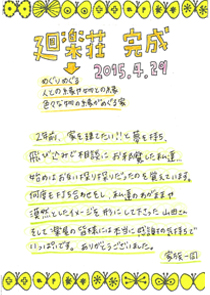 廻楽荘 完成
2015.4.29
めぐりめぐる
人との縁や物との縁
色々な物の縁がめぐる家
2年前、家を建てたい!!と夢を持ち、
飛び込みで相談にお邪魔した私達…
始めはお互い探り探りだったのを覚えています。
何度も打ち合わせをし、私達のあがままや
漠然としたイメージを形にして下さった山田さん
そして皆様には本当に感謝の気持ちで
いっぱいです。ありがとうございました。
家族一同